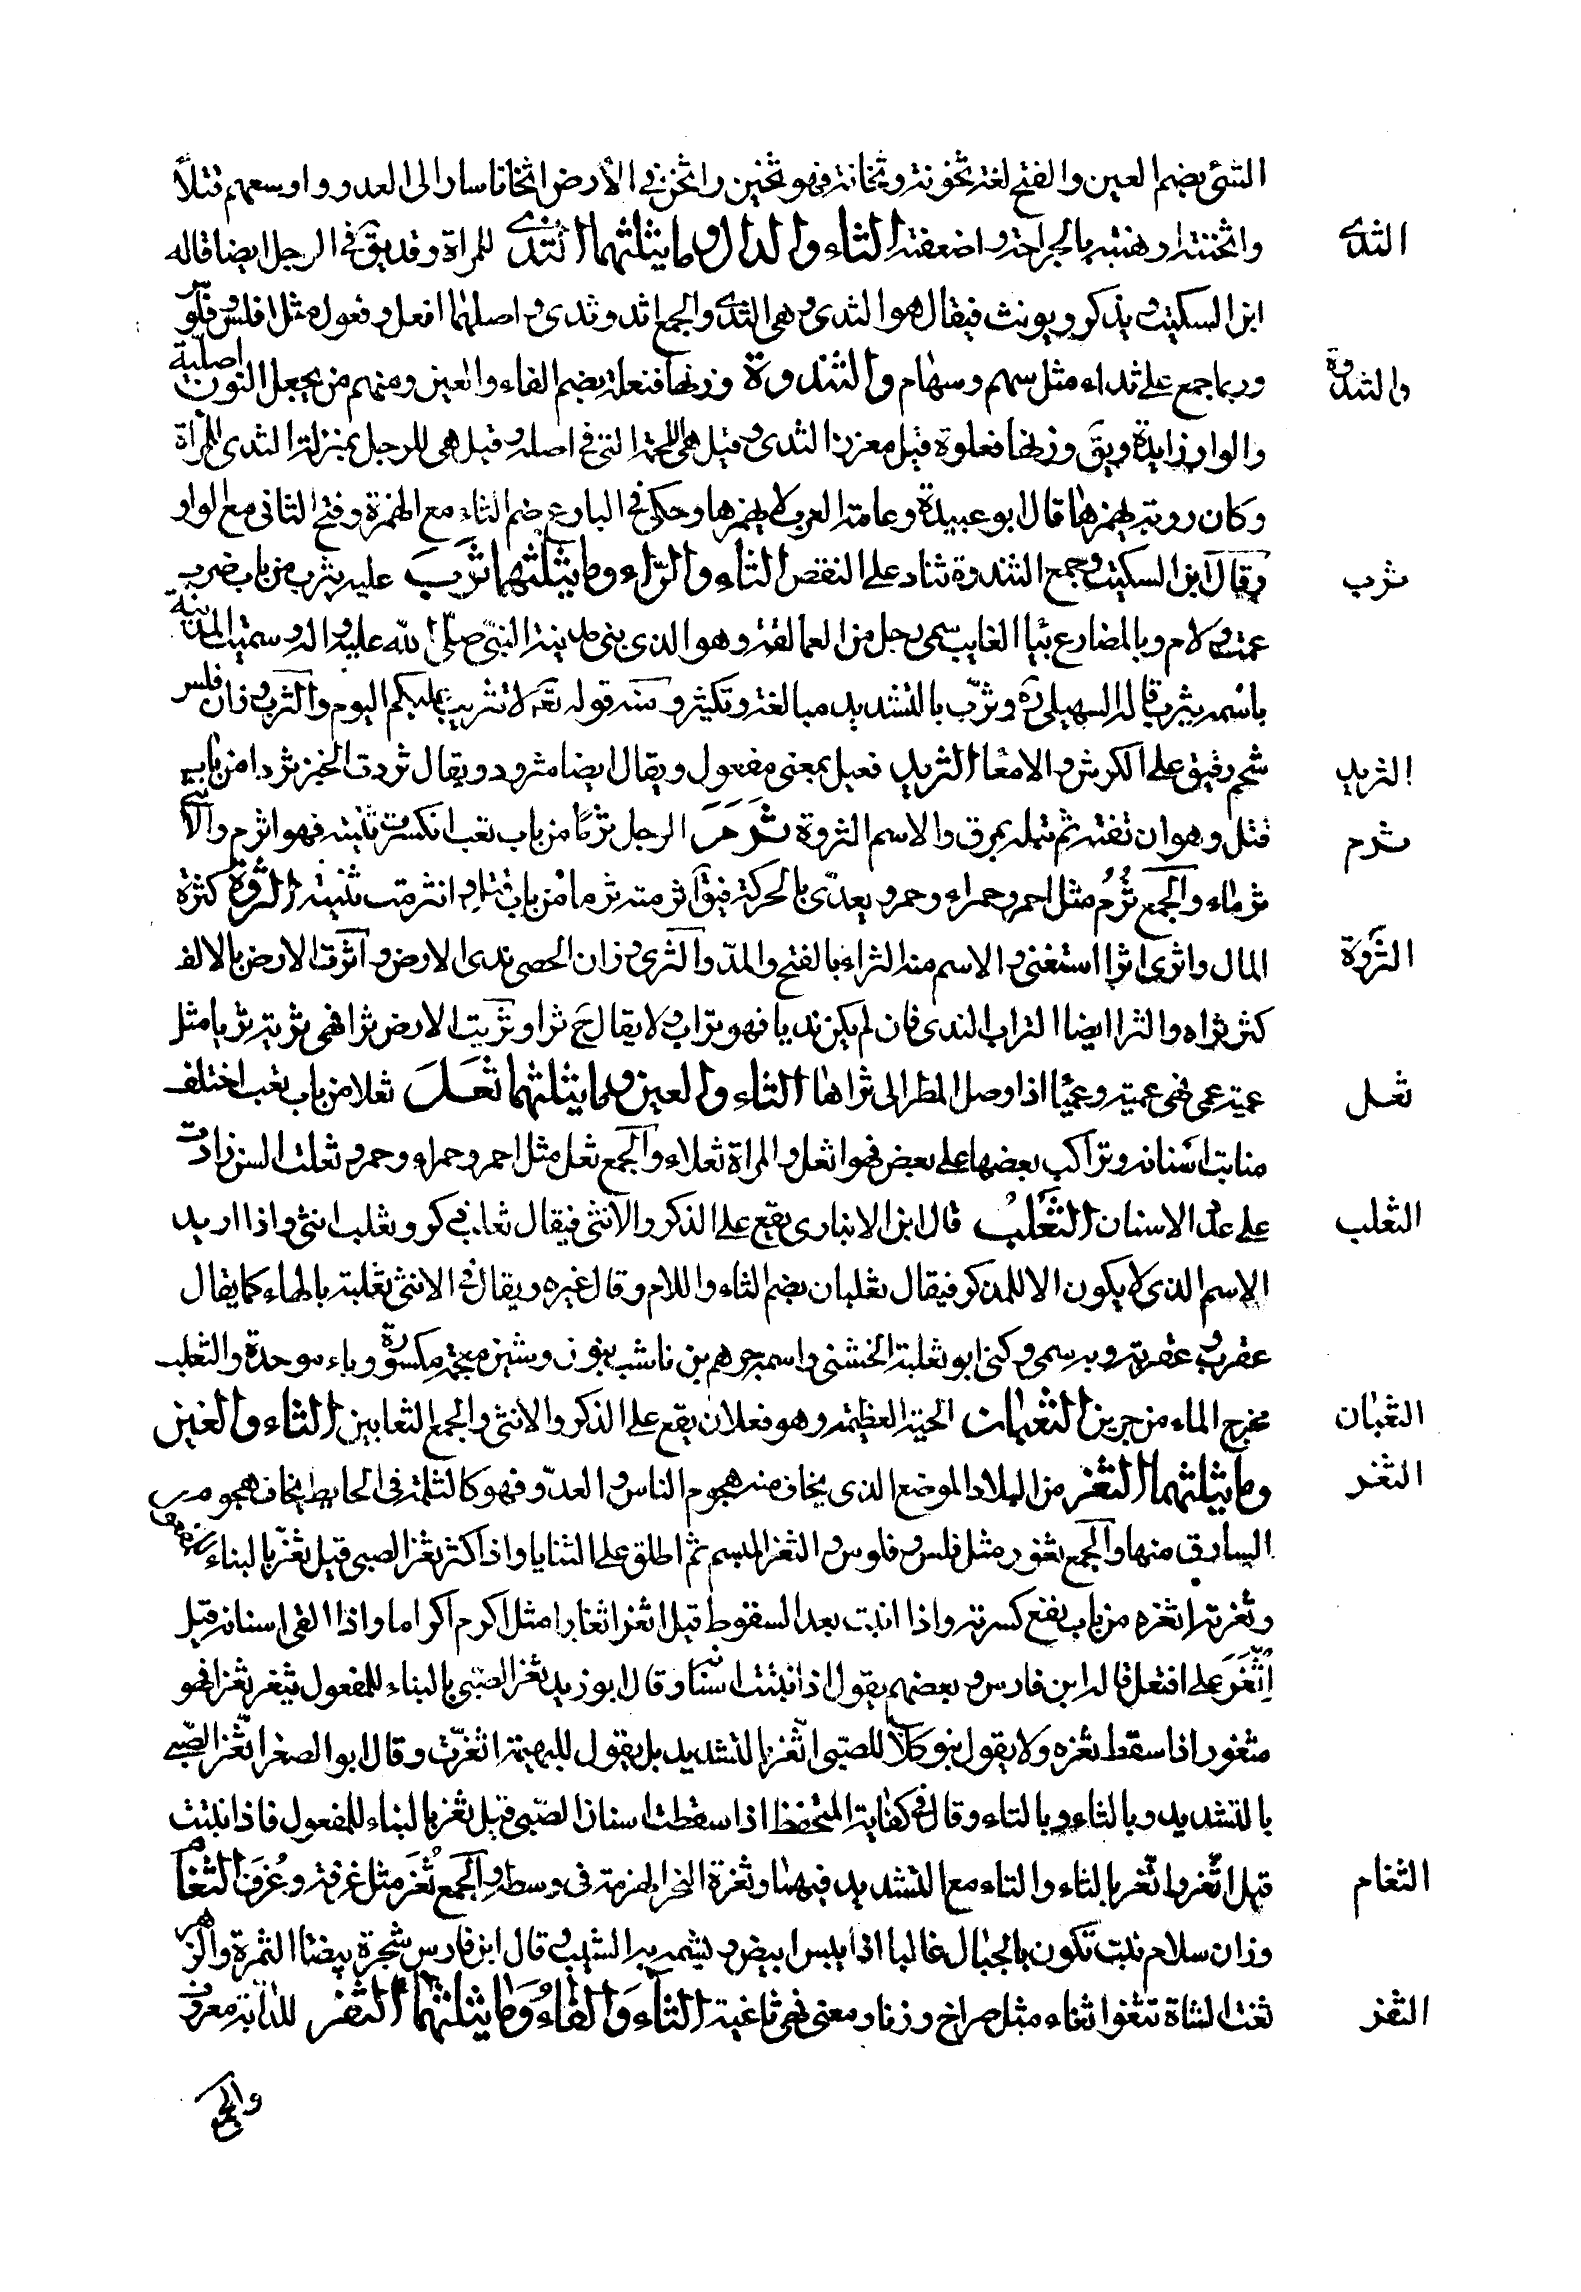 الشئ بضم العين والفتح لغة ثخونة وثخانة فهو ثخين واثخن في الأرض اثخانا سار الى العدو واوسعهم قتلاً
الثدى
واثخنته اوهنته بالجراحة واضعفته الثاء والدال وما يثلثهما الثدى للمراة وقد يقَ في الرجل ايضا قاله
ابن السكيت ويذكر ويونث فيقال هو الثدى وهى الثدى والجمع اثد وثدى واصلهما افعل وفعول مثل افلس وفلوس
والثندوة
وربما جمع على ثداء مثل سهم وسهام والثندوة وزنها فنعلة بضم الفاء والعين ومنهم من يجعل النون اصلية
والواو زايدة ويقَ وزنها فعلوة قيل مغرز الثدى وقيل هى اللحمة التي في اصله وقيل هى للرجل بمنزلة الثدى للمراة
وكان روبة يهمزها قال ابو عبيدة وعامة العرب لا يهمزها وحكى في البارع ضم الثاء مع الهمزة وفتح الثانى مع الواو
ثرب
وقال ابن السكيت وجمع الثندوة ثناد على النقص الثاء والرّاء وما يثلثهما ثَرَبَ عليه يثرب من باب ضرب
عتب ولام وبالمضارع بيا الغايب سمى رجل من العمالقة وهو الذى بنى مدينة النبيّ صلّى الله عليه واله وسميت المدينة
باسمه يثرب قاله السهيلى ره وثرّب بالتشديد مبالغة وتكثير ومنه قوله تعَ لا تثريب عليكم اليوم والثرب وزان فلس
الثريد
شحم رقيق على الكرش والامعا الثريد فعيل بمعنى مفعول ويقال ايضا مثرود ويقال ثردت الخبز ثردا من باب
ثرم
قتل وهو ان تفته ثم تبله بمرق والاسم الثردة ثَرَمَ الرجل ثرمًا من باب تعب انكسرت ثنيته فهو اثرم والانثى
ثرماء والجمع ثُرُم مثل احمر وحمراء وحمر ويعدّى بالحركة فيقَ ثرمته ثرما من باب قتل وانثرمت ثنيته الثروة كثرة
الثروة
المال واثرى اثرا استغنى والاسم منه الثراء بالفتح والمدّ والثرى وزان الحصى ندى الارض واثرت الارض بالالف
كثر ثراه والثرا ايضا التراب الندى فان لم يكن نديا فهو تراب ولا يقال ح ثرا وثريت الارض ثرا فهى ثرية ثريا مثل
ثعل
عميت عمى فهى عمية وعميًا اذا وصل المطر الى ثراها الثاء والعين وما يثلثهما ثعَلَ ثعلا من باب تعب اختلف
منابت اسنانه وتراكب بعضها على بعض فهو اثعل والمراة ثعلاء والجمع ثعل مثل احمر وحمراء وحمر وثعلت السن زادت
الثعلب
على عدد الاسنان الثَعلَبُ قال ابن الانبارى يقع على الذكر والانثى فيقال ثعلب ذكر وثعلب انثى واذا اريد
الاسم الذى لا يكون الا للمذكر فيقال ثعلبان بضم الثاء واللام وقال غيره ويقال في الانثى ثعلبة بالهاء كما يقال
عقرب وعقربة وبه سمى وكنى ابو ثعلبة الخشنى واسمه جرهم بن ناشب بنون وشين معجمة مكسورة وباء موحدة والثعلب
الثعبان
مخرج الماء من جرين الثعبان الحية العظيمة وهو فعلان يقع على الذكر والانثى والجمع الثعابين الثاء والغين
الثغر
وما يثلثهما الثغر من البلاد الموضع الذى يخاف منه هجوم الناس والعدوّ فهو كالثلمة في الحايط يخاف هجوم
السارق منها والجمع ثغور مثل فلس وفلوس والثغر المبسم ثم اطلق على الثنايا واذا كثر ثغر الصبى قيل ثغر بالبناء
وثغرته اثغره من باب نفع كسرته واذا انبت بعد السقوط قيل اثغر اثغارا مثل اكرم اكراما واذا القى اسنانه قيل
اِثّغَرَ على افتعل قاله ابن فارس وبعضهم يقول اذا نبتت اسنانه وقال ابو زيد ثغر الصبى بالبناء للمفعول يثغر ثغرا فهو
مثغور اذا سقط ثغره ولا يقول بنو كلاب للصبى اثّغر بالتشديد بل يقول للبهيمة اثغرت وقال ابو الصغر اثّغر الصبى
بالتشديد وبالثاء وبالتاء وقال في كفاية المتحفظ اذا سقطت اسنان الصبى قيل ثغر بالبناء للمفعول فاذا نبتت
الثغام
قيل اثّغر واتّغر بالثاء والتاء مع التشديد فيهما وثغرة النحر الهزمة فى وسطه والجمع ثُغَر مثل غرفة وغُرَف الثغام
وزان سلام نبت تكون بالجبال غالبا اذا يبس ابيض ويشبه به الشيب وقال ابن فارس شجرة بيضا الثمرة والزهر
الثفر
ثغت الشاة تثغوا ثغاء مثل صراخ وزنا ومعنى فهى ثاغية الثاءُ وَالفاءُ وَما يثلثهُما الثفر للدابّة معروف
والجمع